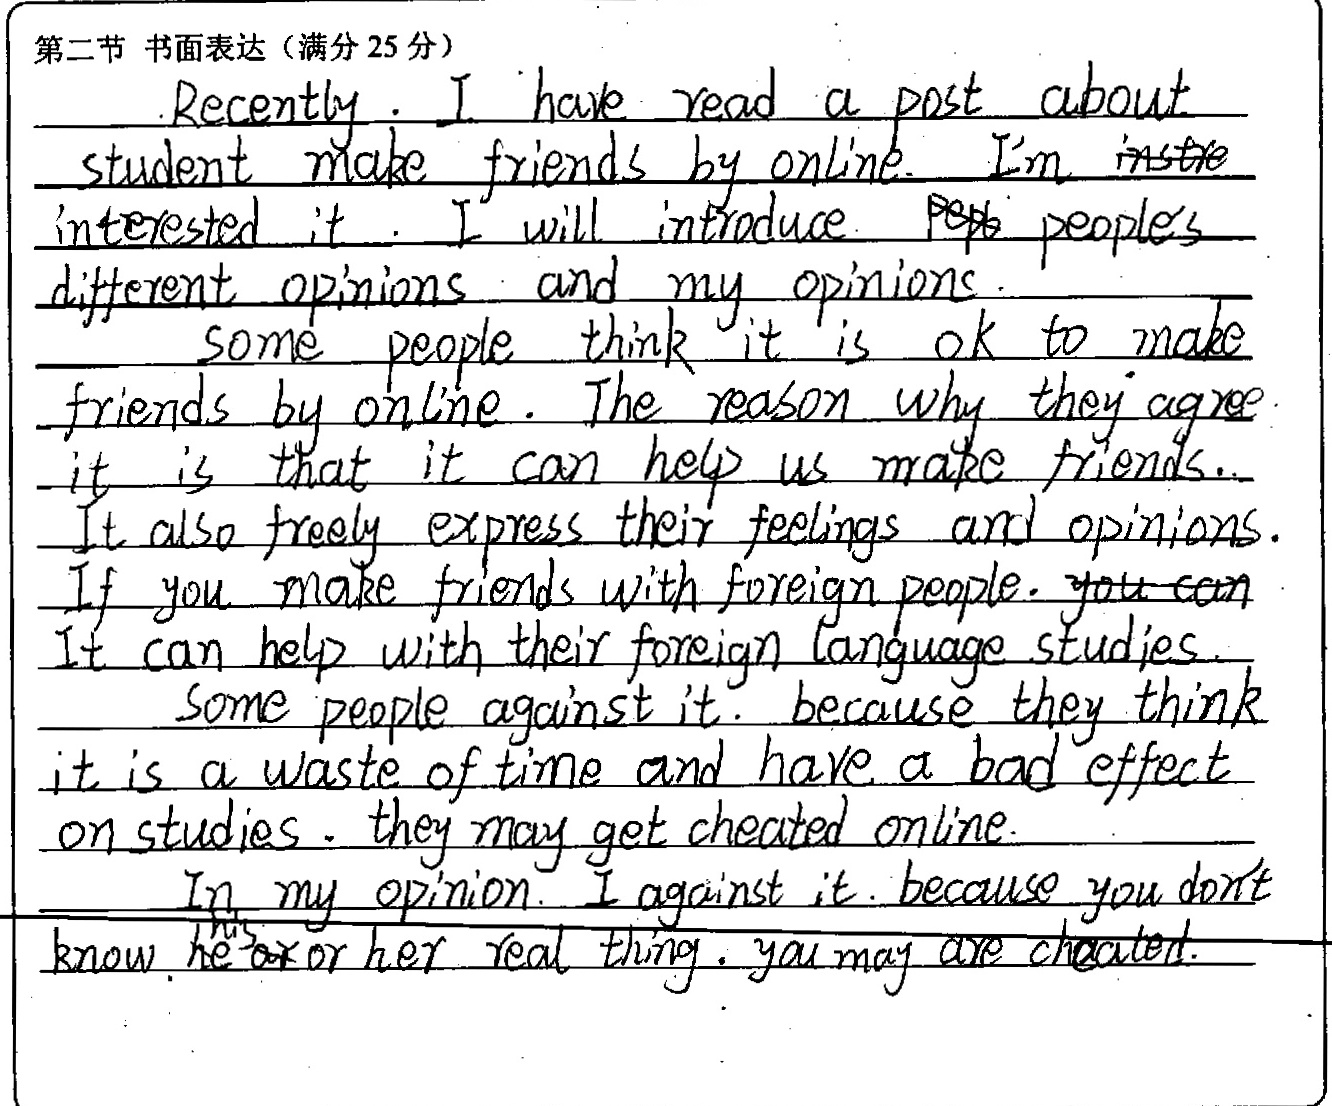 第二节 书面表达（满分 25 分）
Recently. I have read a post about
student make friends by online. I'm
interested it. I will introduce people's
different opinions and my opinions.
Some people think it is ok to make
friends by online. The reason why they agree
it is that it can help us make friends..
It also freely express their feelings and opinions.
If you make friends with foreign people. you can
It can help with their foreign language studies.
Some people against it. because they think
it is a waste of time and have a bad effect
on studies. they may get cheated online.
In my opinion. I against it. because you don't
know his or her real thing. you may are cheated.